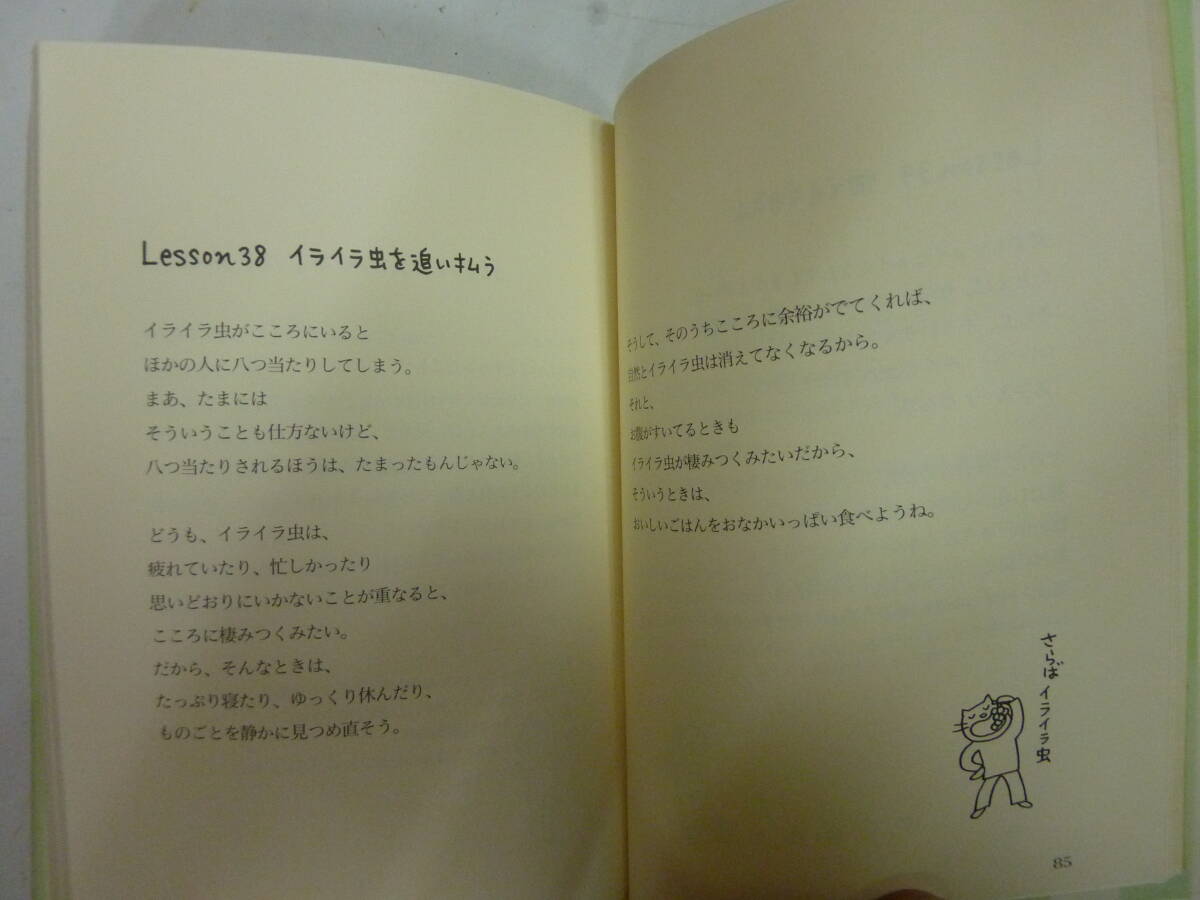 Lesson38 イライラ虫を追い払う
イライラ虫がこころにいると
ほかの人に八つ当たりしてしまう。
まあ、たまには
そういうことも仕方ないけど、
八つ当たりされるほうは、たまったもんじゃない。
どうも、イライラ虫は、
疲れていたり、忙しかったり
思いどおりにいかないことが重なると、
こころに棲みつくみたい。
だから、そんなときは、
たっぷり寝たり、ゆっくり休んだり、
ものごとを静かに見つめ直そう。
そうして、そのうちこころに余裕がでてくれば、
自然とイライラ虫は消えてなくなるから。
それと、
お腹がすいてるときも
イライラ虫が棲みつくみたいだから、
そういうときは、
おいしいごはんをおなかいっぱい食べようね。
さらば イライラ虫
85